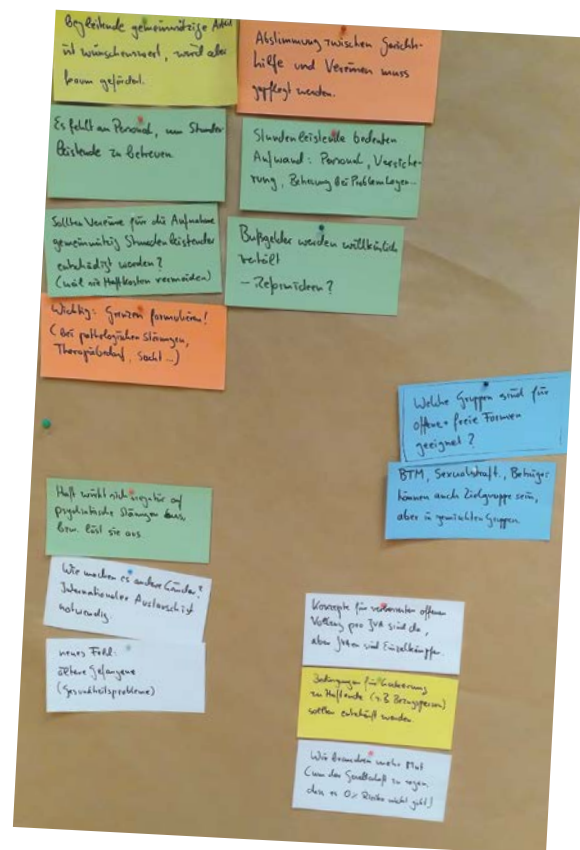 Begleitende gemeinnützige Arbeit
ist wünschenswert, wird aber
kaum gefördert.
Abstimmung zwischen Gerichts-
hilfe und Vereinen muss
gepflegt werden.
Es fehlt an Personal, um Stunden
leistende zu betreuen.
Stundenleistende bedeuten
Aufwand: Personal, Versiche-
rung, Betreuung bei Problemlagen...
Sollten Vereine für die Aufnahme
gemeinnützig Stundenleistender
entschädigt werden?
(weil sie Haftkosten vermeiden)
Bußgelder werden willkürlich
verteilt
- Reformideen?
Wichtig: Grenzen formulieren!
(bei pathologischen Störungen,
Therapiebedarf, Sucht...)
Welche Gruppen sind für
offene + freie Formen
geeignet?
BTM, Sexualstraft., Betrüger
können auch Zielgruppe sein,
aber in gemischten Gruppen.
Haft wirkt sich negativ auf
psychiatrische Störungen aus,
bzw. löst sie aus
Wie machen es andere Länder?
Internationaler Austausch ist
notwendig.
neues Feld:
ältere Gefangene
(Gesundheitsprobleme)
Konzepte für offenen
Vollzug pro JVA sind da,
aber JVAen sind Einzelkämpfer.
Bedingungen für Lockerung
zu Haftende (z.B Bezugsperson)
sollten entschärft werden
Wir brauchen mehr Mut
(um der Gesellschaft zu sagen,
dass es 0% Risiko nicht gibt)